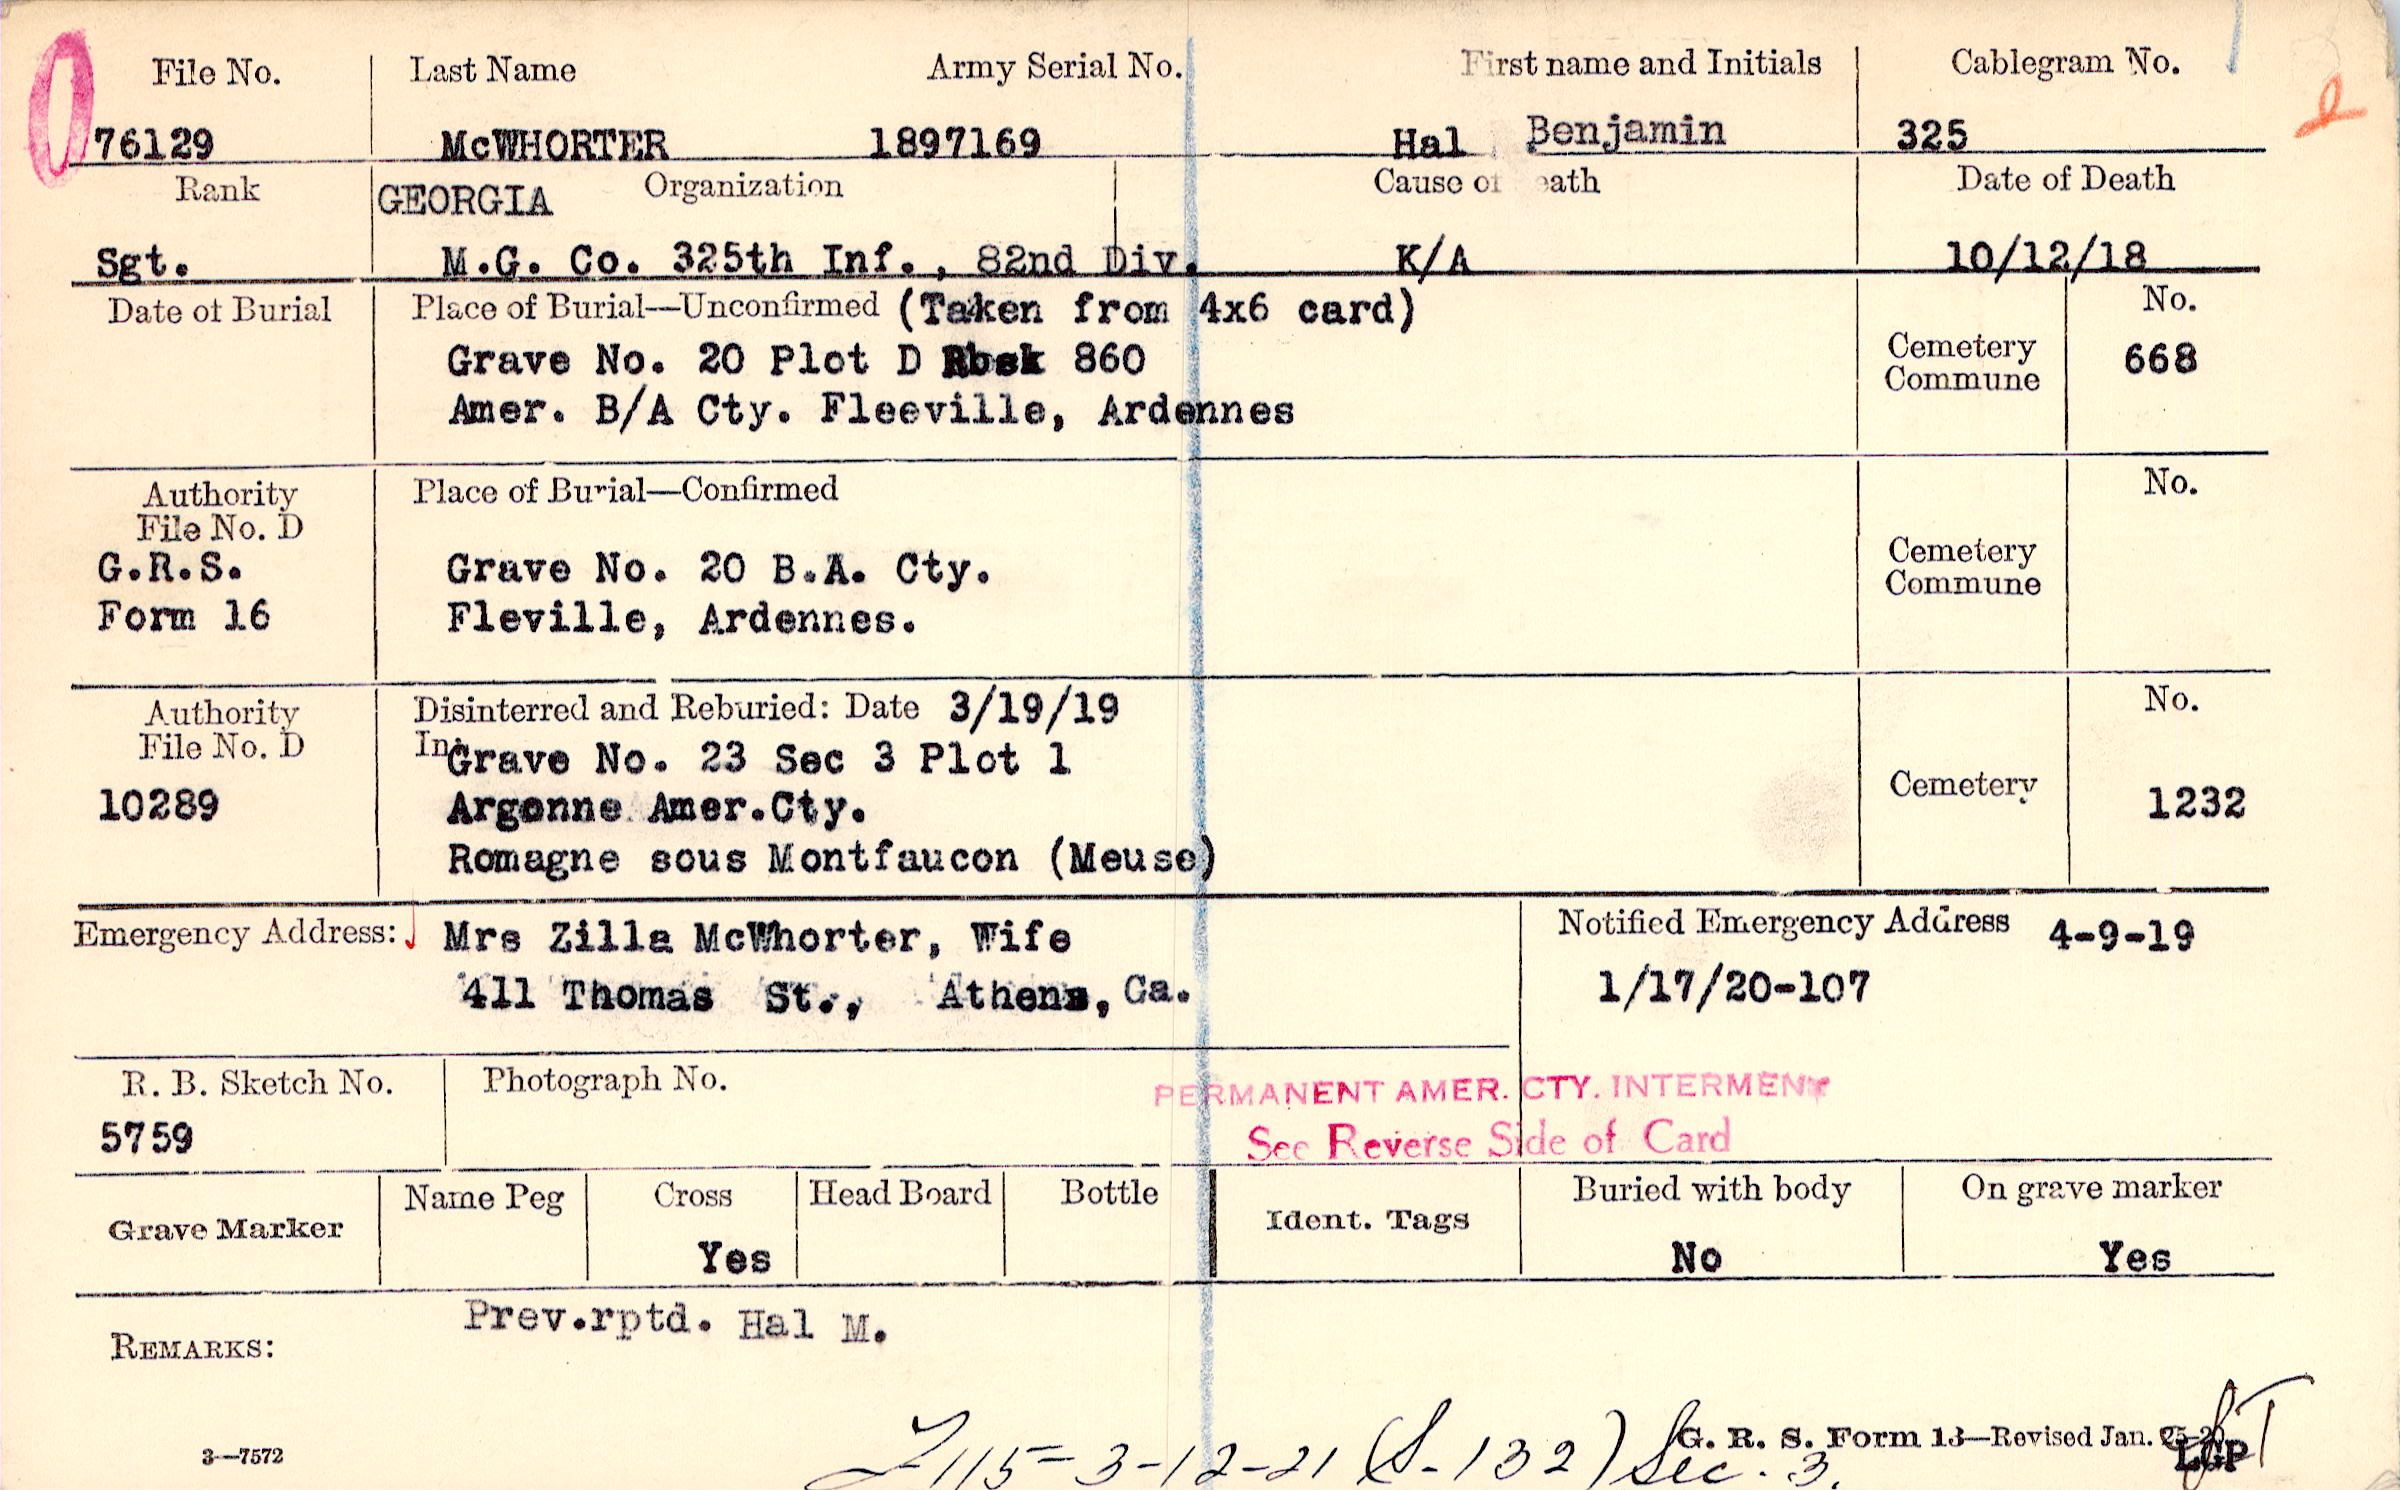 File No. Last Name Army Serial No. First name and Initials Cablegram No.
76129 McWHORTER 1897169 Hal Benjamin 325
Rank GEORGIA Organization Cause of Death Date of Death
Sgt. M.G. Co. 325th Inf., 82nd Div. K/A 10/12/18
Date of Burial Place of Burial—Unconfirmed (Taken from 4x6 card) No.
Grave No. 20 Plot D 860 Cemetery Commune 668
Amer. B/A Cty. Fleeville, Ardennes
Authority File No. D Place of Burial—Confirmed No.
G.R.S. Grave No. 20 B.A. Cty. Cemetery Commune
Form 16 Fleville, Ardennes.
Authority File No. D Disinterred and Reburied: Date 3/19/19 No.
In Grave No. 23 Sec 3 Plot 1
10289 Argonne Amer.Cty. Cemetery 1232
Romagne sous Montfaucon (Meuse)
Emergency Address: Mrs Zilla McWhorter, Wife Notified Emergency Address 4-9-19
411 Thomas St., Athens, Ga. 1/17/20-107
R. B. Sketch No. Photograph No. PERMANENT AMER. CTY. INTERMENT
5759 See Reverse Side of Card
Grave Marker Name Peg Cross Head Board Bottle Ident. Tags Buried with body On grave marker
Yes No Yes
REMARKS: Prev.rptd. Hal M.
3—7572 G. R. S. Form 13—Revised Jan.
115-3-12-21 (S-132) Sec. 3. LGP